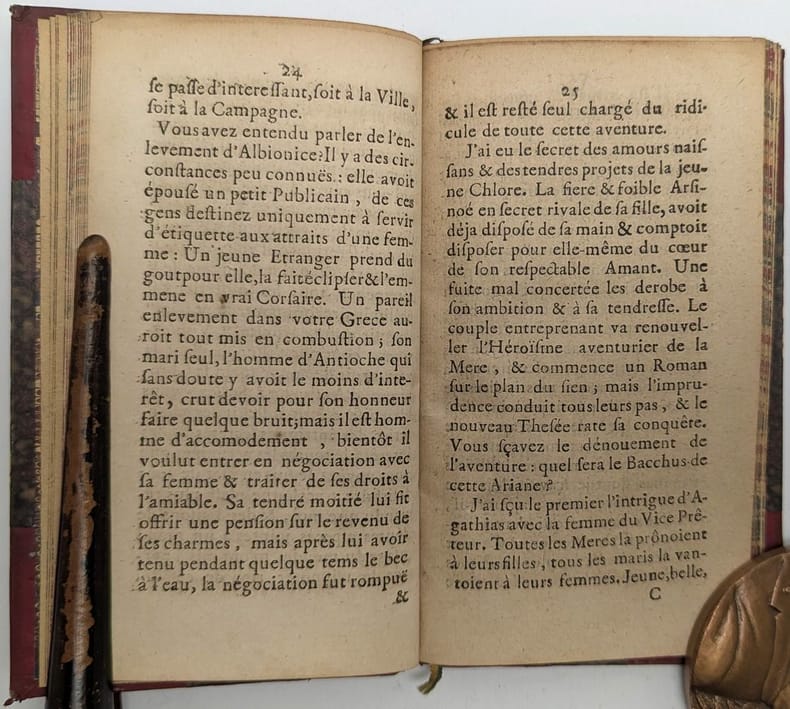 24
ſe paſſe d'intereſſant, ſoit à la Ville,
ſoit à la Campagne.
Vous avez entendu parler de l'en-
levement d'Albionice? Il y a des cir-
conſtances peu connuës : elle avoit
épouſé un petit Publicain , de ces
gens deſtinez uniquement à ſervir
d'étiquette aux attraits d'une fem-
me : Un jeune Etranger prend du
gout pour elle, la fait éclipſer & l'em-
mene en vrai Corſaire. Un pareil
enlevement dans votre Grece au-
roit tout mis en combuſtion ; ſon
mari ſeul, l'homme d'Antioche qui
ſans doute y avoit le moins d'inte-
rêt, crut devoir pour ſon honneur
faire quelque bruit; mais il eſt hom-
me d'accomodement , bientôt il
voulut entrer en négociation avec
ſa femme & traiter de ſes droits à
l'amiable. Sa tendre moitié lui fit
offrir une penſion ſur le revenu de
ſes charmes , mais après lui avoir
tenu pendant quelque tems le bec
à l'eau, la négociation fut rompuë
&
25
& il eſt reſté ſeul chargé du ridi-
cule de toute cette aventure.
J'ai eu le ſecret des amours naiſ-
ſans & des tendres projets de la jeu-
ne Chlore. La fiere & foible Arſi-
noé en ſecret rivale de ſa fille, avoit
déja diſpoſé de ſa main & comptoit
diſpoſer pour elle-même du cœur
de ſon reſpectable Amant. Une
fuite mal concertée les derobe à
ſon ambition & à ſa tendreſſe. Le
couple entreprenant va renouvel-
ler l'Héroïſme aventurier de la
Mere , & commence un Roman
ſur le plan du ſien ; mais l'impru-
dence conduit tous leurs pas , & le
nouveau Theſée rate ſa conquête.
Vous ſçavez le dénouement de
l'aventure : quel ſera le Bacchus de
cette Ariane ?
J'ai ſçu le premier l'intrigue d'A-
gathias avec la femme du Vice Prê-
teur. Toutes les Meres la prônoient
à leurs filles , tous les maris la van-
toient à leurs femmes. Jeune, belle,
C